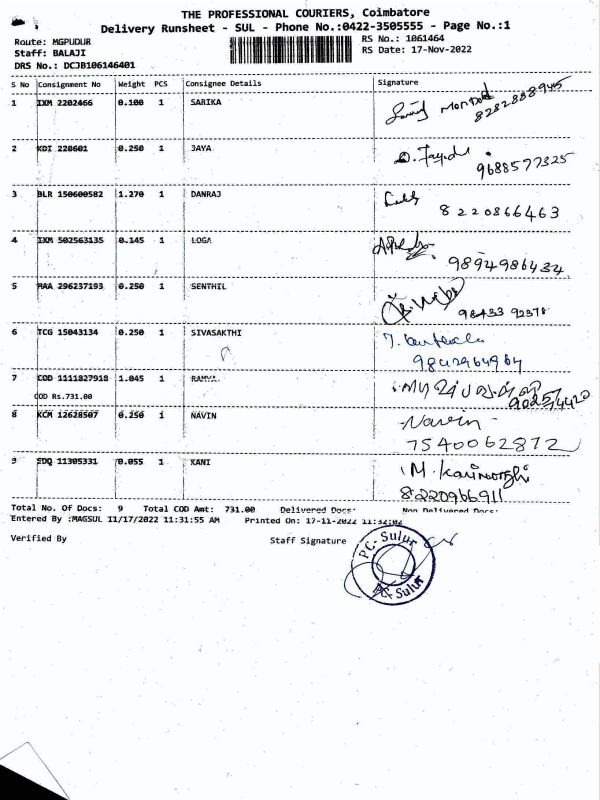 THE PROFESSIONAL COURIERS, Coimbatore
Delivery Runsheet - SUL - Phone No.:0422-3505555 - Page No.:1
Route: MGPUDUR
Staff: BALAJI
DRS No.: DCJB106146401
RS No.: 1061464
RS Date: 17-Nov-2022
S No Consignment No Weight PCS Consignee Details Signature
1 IXM 2202466 0.100 1 SARIKA
8282838945
2 KDI 228601 0.250 1 JAYA
9688577325
3 BLR 150600582 1.270 1 DANRAJ
8220866463
4 IXM 502563135 0.145 1 LOGA
9894986432
5 MAA 296237193 0.250 1 SENTHIL
98433 92378
6 TCG 15043134 0.250 1 SIVASAKTHI
9842964964
7 COD 1111827918 1.045 1 RAMYA
COD Rs.731.00
8 KCM 12628507 0.250 1 NAVIN Navin
7540062872
9 EDQ 11305331 0.055 1 KANI M. Kanimozhi
8220966911
Total No. Of Docs: 9 Total COD Amt: 731.00 Delivered Docs: Non Delivered Docs:
Entered By :MAGSUL 11/17/2022 11:31:55 AM Printed On: 17-11-2022 11:32:02
Verified By Staff Signature
PC- Sulur
PC- Sulur